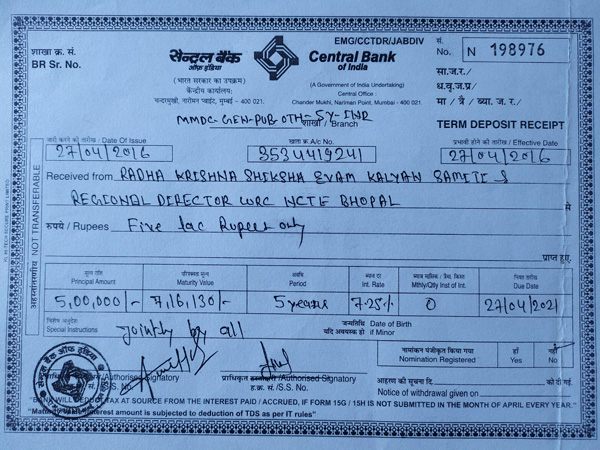 EMG/CCTDR/JABDIV
शाखा क्र. सं.
BR Sr. No.
सेन्ट्रल बैंक
ऑफ इंडिया
(भारत सरकार का उपक्रम)
केन्द्रीय कार्यालय:
चन्दरमुखी, नारीमन प्वाइंट, मुम्बई - 400 021.
Central Bank
of India
(A Government of India Undertaking)
Central Office :
Chander Mukhi, Nariman Point, Mumbai - 400 021.
सं.
No. N 198976
सा.ज.र./
ध.वृ.ज.प्र/
मा / त्रै / ब्या. ज. र./
MMDC-GEN-PUB-OTH-5Y-INR
शाखा / Branch
TERM DEPOSIT RECEIPT
जारी करने की तारीख / Date Of Issue
खाता क्र. A/c No.
प्रभावी होने की तारीख / Effective Date
27/04/2016
3534419241
27/04/2016
Received from RADHA KRISHNA SHIKSHA EVAM KALYAN SAMITI &
REGIONAL DIRECTOR WRC NCTE BHOPAL से
रुपये / Rupees Five lac Rupees only
प्राप्त हुए.
अहस्तांतरणीय NOT-TRANSFERABLE
मूल राशि
Principal Amount
परिपक्वता मूल्य
Maturity Value
अवधि
Period
ब्याज दर
Int. Rate
Mthly/Qtly Inst of Int.
नियत तारीख
Due Date
5,00,000/-
7,16,130/-
5 years
7.25%
0
27/04/2021
विशेष अनुदेश
Special Instructions
Jointly by all
जन्मतिथि Date of Birth
यदि अवयस्क हो if Minor
नामांकन पंजीकृत किया गया
Nomination Registered
हाँ
Yes
नहीं
No
सेन्ट्रल बैंक ऑफ इंडिया
/Authorised Signatory
/S.S. No.
प्राधिकृत /Authorised Signatory
ह.क्र. सं./S.S. No.
आहरण की सूचना दि. को दी गई.
Notice of withdrawal given on
"BANK WILL DEDUCT TAX AT SOURCE FROM THE INTEREST PAID / ACCRUED, IF FORM 15G / 15H IS NOT SUBMITTED IN THE MONTH OF APRIL EVERY YEAR."
"Maturity Value/Interest amount is subjected to deduction of TDS as per IT rules"